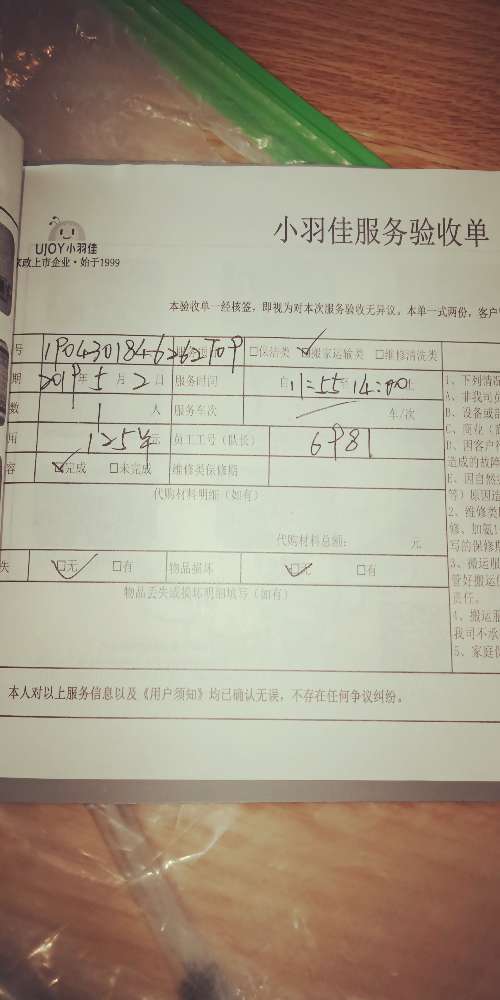 小羽佳服务验收单
UJOY小羽佳
家政上市企业·始于1999
本验收单一经核签，即视为对本次服务验收无异议。本单一式两份，客户
号 □保洁类 ☑搬家运输类 □维修清洗类
期 2019年5月2日 服务时间 自11:55至14:00止
数 1人 服务车次 车/次
用 125元 员工工号（队长） 6981
容 ☑完成 □未完成 维修类保修期
代购材料明细（如有）
代购材料总额： 元
失 ☑无 □有 物品损坏 ☑无 □有
物品丢失或损坏明细填写（如有）
本人对以上服务信息以及《用户须知》均已确认无误，不存在任何争议纠纷。
1、下列情况
A、非我司员
B、设备或部
D、因客户
造成的故障
E、因自然
等）原因造
2、维修类
修、如氨
写的保修期
3、搬运服
管好搬运
责任。
4、搬运服
我司不承
5、家庭保